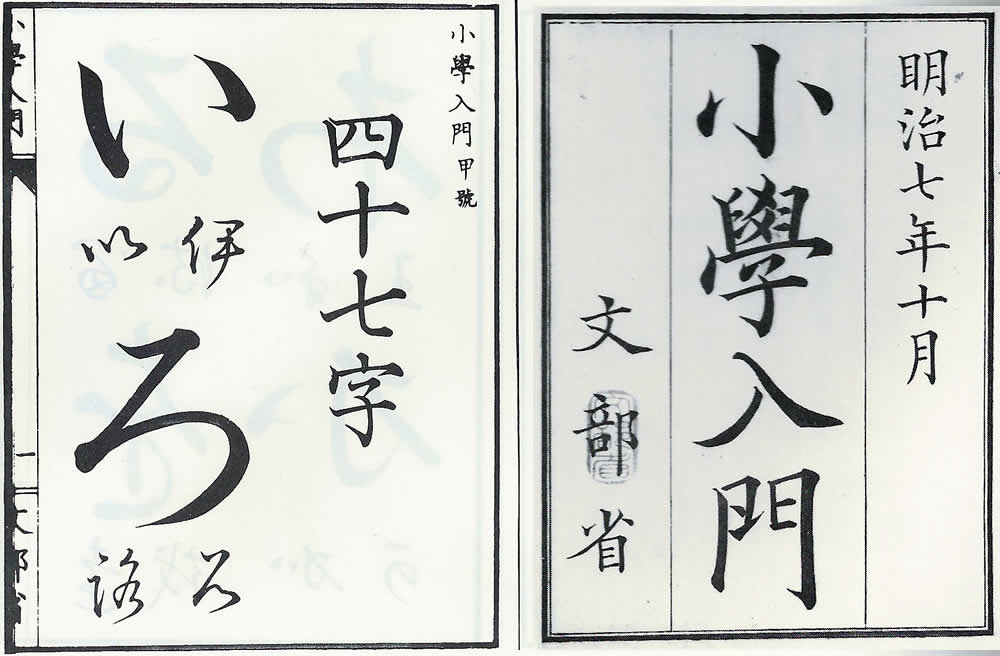 明治七年十月
小學入門
文部省
小學入門甲號
四十七字
い
伊
以
ろ
呂
路
小學入門
一
文部省